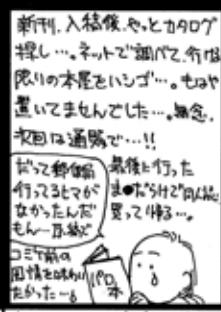 新刊、入稿後、やっとカタログ
探し…。ネットで調べて、行ける
限りの本屋をハシゴ…。もはや
置いてませんでした…。無念。
次回は通販で…!!
だって郵便局
行ってるヒマが
なかったんだ
もん〜原稿で
最後に行った
ま●だらけで同人誌
買って帰る…。
コミケ前の
風情を味わい
たかった…。
パロ
本